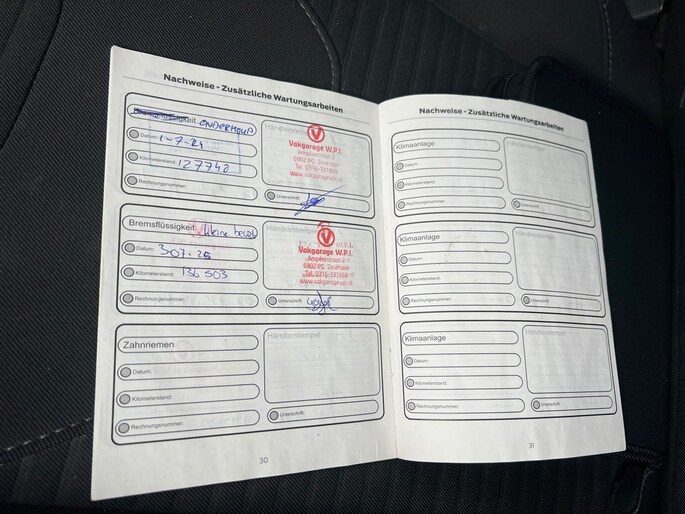 Nachweise - Zusätzliche Wartungsarbeiten
Bremsflüssigkeit ONDERHOUD
Händlerstempel
Datum: 1-7-24
Kilometerstand: 127740
Rechnungsnummer:
Vakgarage W.P.I.
6902 PG Zevenaar
Tel. 0316-331868
www.vakgaragewpi.nl
Unterschrift:
Bremsflüssigkeit kleine beurt
Datum: 307-25
Kilometerstand: 136503
Rechnungsnummer:
Vakgarage W.P.I.
6902 PG Zevenaar
Tel. 0316-331868
www.vakgaragewpi.nl
Unterschrift:
Zahnriemen
Händlerstempel
Datum:
Kilometerstand:
Rechnungsnummer:
Unterschrift:
30
Nachweise - Zusätzliche Wartungsarbeiten
Klimaanlage
Händlerstempel
Datum:
Kilometerstand:
Rechnungsnummer:
Unterschrift:
Klimaanlage
Händlerstempel
Datum:
Kilometerstand:
Rechnungsnummer:
Unterschrift:
Klimaanlage
Händlerstempel
Datum:
Kilometerstand:
Rechnungsnummer:
Unterschrift:
31